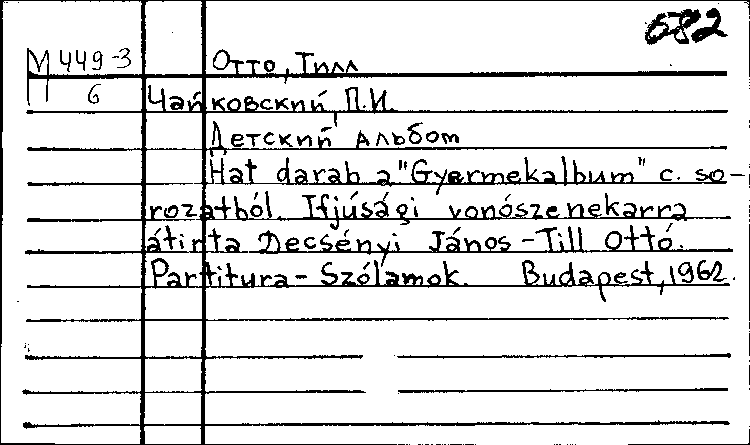 682
М 449-3
6
Отто, Тилл
Чайковский, П.И.
Детский альбом
Hat darab a "Gyermekalbum" c. so-
rozatból. Ifjúsági vonószenekarra
átirta Decsényi János - Till Ottó.
Partitura - Szólamok. Budapest, 1962.